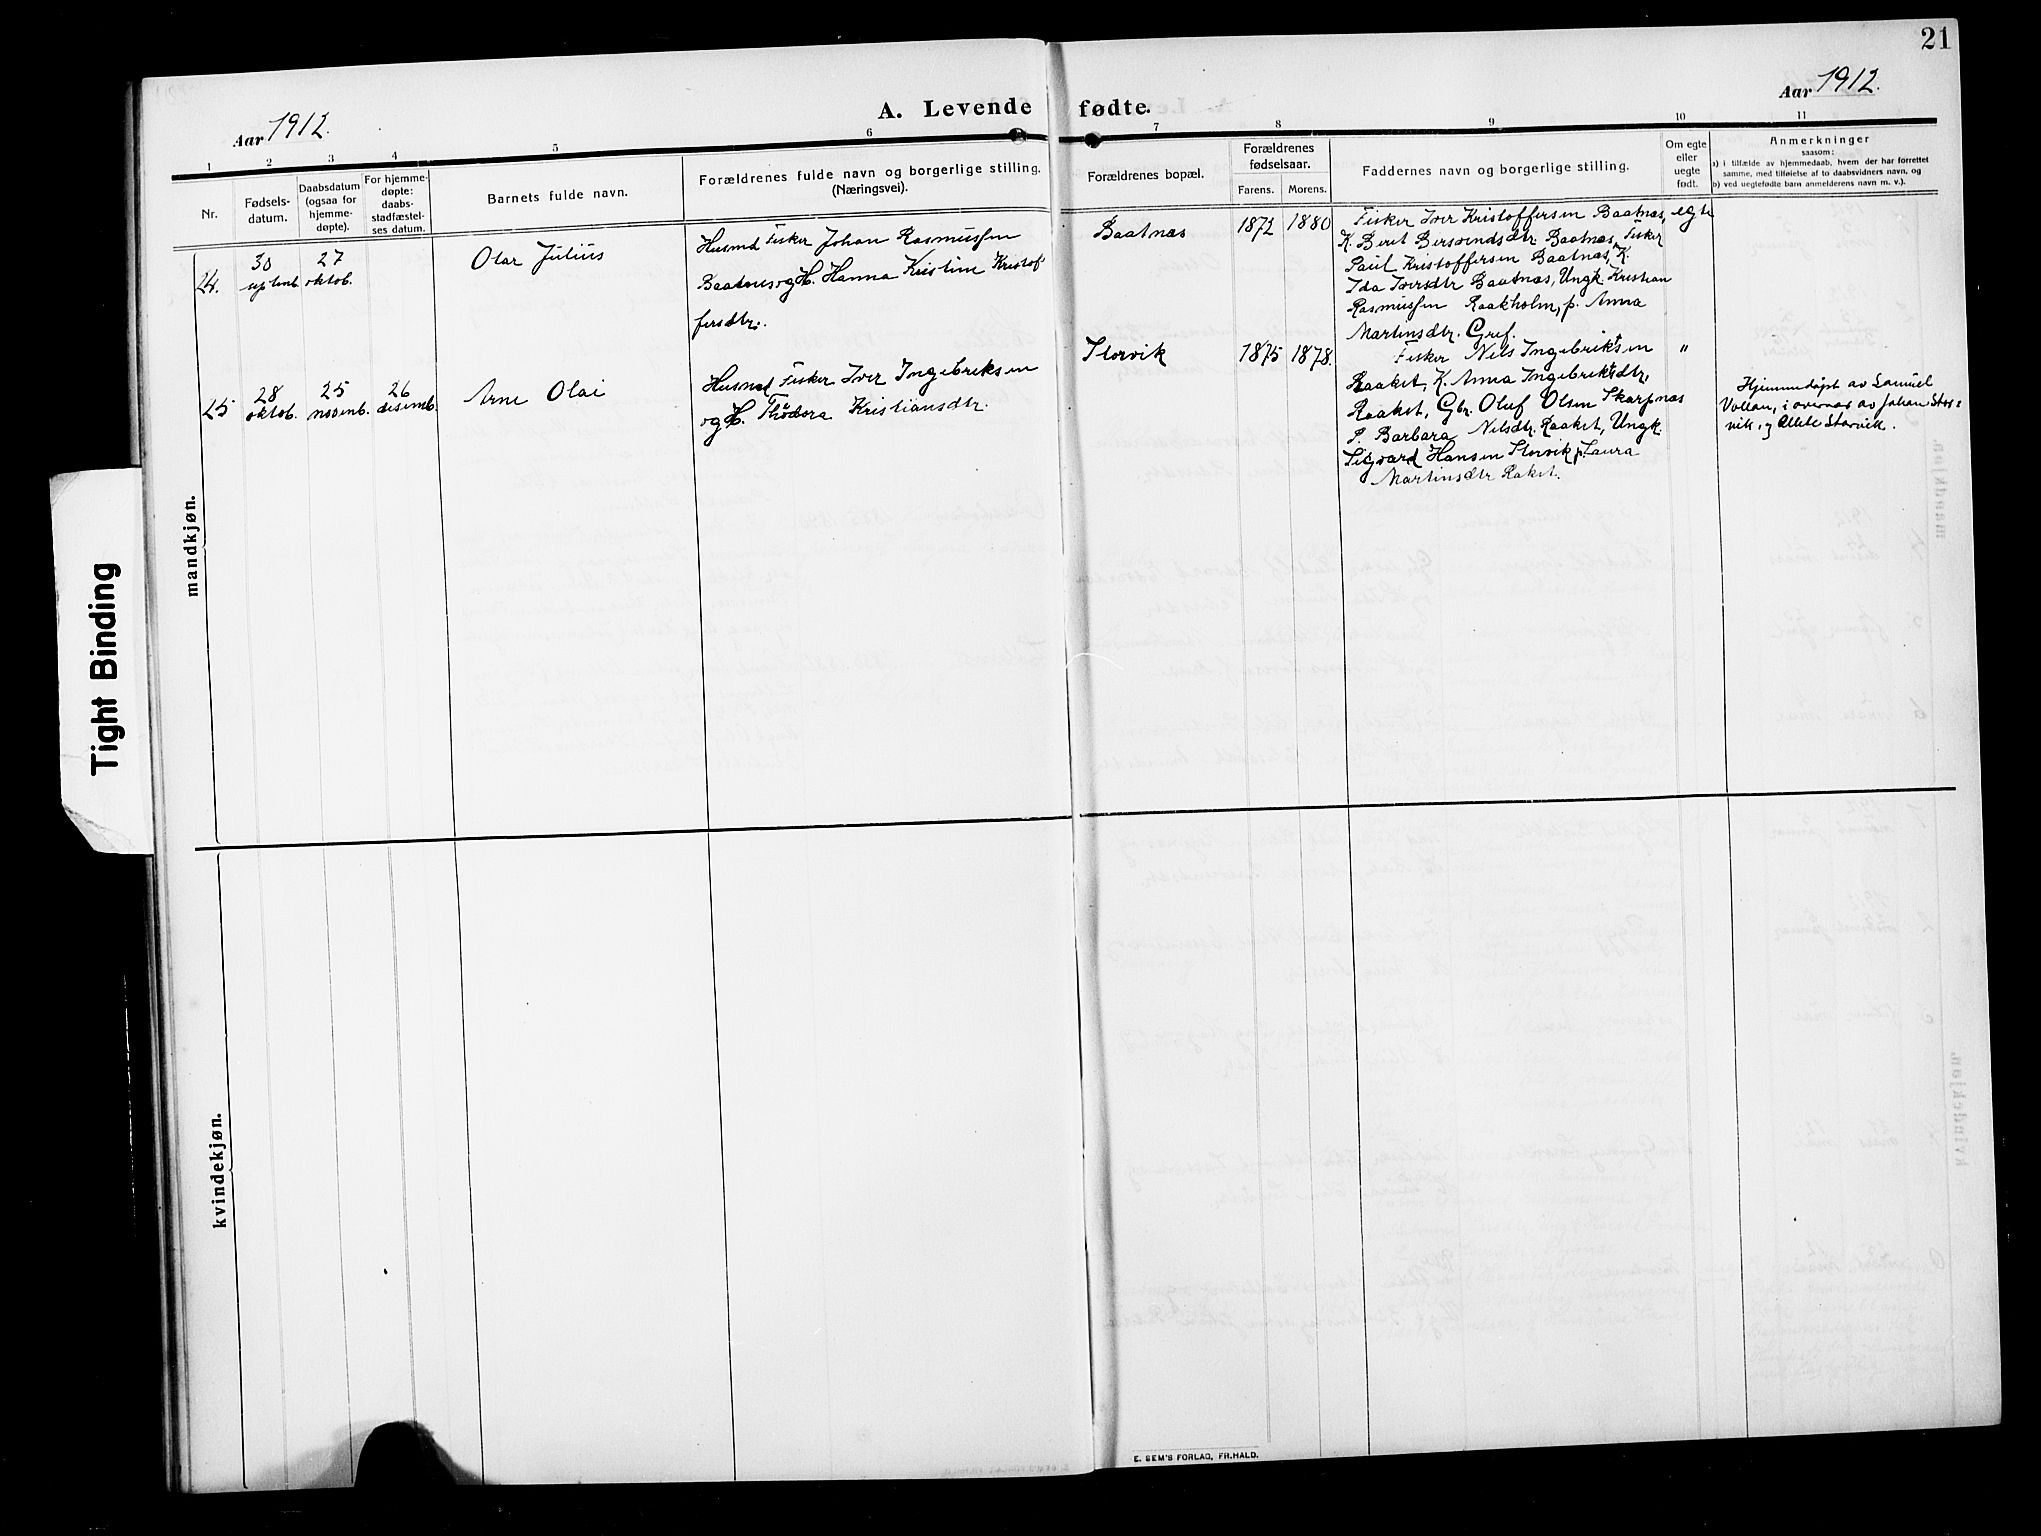 21
Aar 1912.
A. Levende fødte.
Aar 1912.
1 2 3 4 5 6 7 8 9 10 11
Nr.
Fødsels-
datum.
Daabsdatum
(ogsaa for
hjemme-
døpte).
For hjemme-
døpte:
daabs-
stadfæstel-
ses datum.
Barnets fulde navn.
Forældrenes fulde navn og borgerlige stilling.
(Næringsvei).
Forældrenes bopæl.
Forældrenes
fødselsaar.
Farens. Morens.
Faddernes navn og borgerlige stilling.
Om egte
eller
uegte
født.
Anmerkninger
saasom:
a) i tilfælde av hjemmedaab, hvem der har forrettet
samme, med tilføielse af to daabsvidners navn, og
b) ved uegtefødte barn anmelderens navn m. v.).
mandkjøn.
24.
30
septemb.
27
oktob.
Olav Julius
Husmd Fisker Johan Rasmussen
Baatnes og H. Hanna Kristine Kristof
fersdtr.
Baatnæs
1872 1880
Fisker Iver Kristoffersen Baatnæs,
K. Beret Bersvendsdtr. Baatnæs, Fisker
Paul Kristoffersen Baatnæs, K.
Ida Iversdtr Baatnæs, Ungk. Kristian
Rasmussen Raakholm, p. Anna
Martinsdtr. Gref.
egte
25
28
oktob.
25
novemb.
26
desemb.
Arne Olai
Husmd Fisker Iver Ingebriksen
og H. Thodora Kristiansdtr.
Storvik
1875 1878.
Fisker Nils Ingebriktsen
Raaket, K. Anna Ingebriktsdtr,
Raaket, Gbr. Oluf Olsen Skarpnæs
P. Barbara Nilsdtr. Raaket, Ungk.
Sigvard Hansen Storvik p. Laura
Martinsdtr Raket.
"
Hjemmedøpt av Samuel
Vollan, i overvær av Johan Stor=
vik, og Ellete Storvik.
kvindekjøn.
Tight Binding
E. SEM'S FORLAG, FR.HALD.